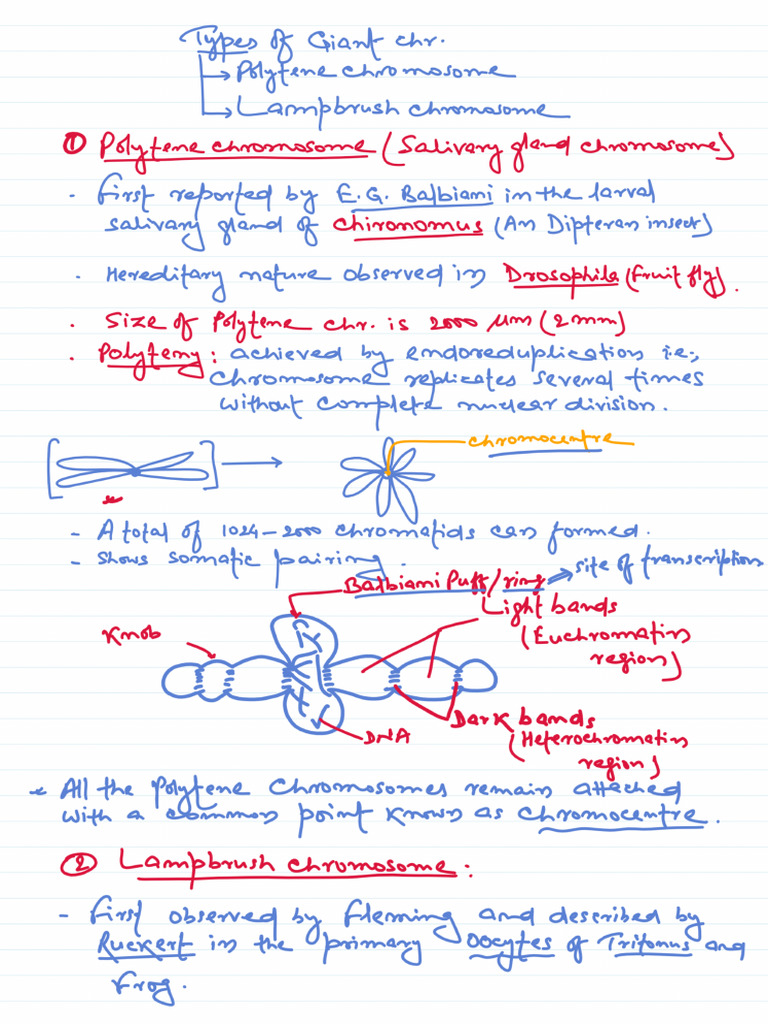 Types of Giant chr.
→ Polytene chromosome
→ Lampbrush chromosome
① Polytene chromosome (Salivary gland chromosome)
· First reported by E.G. Balbiani in the larval
salivary gland of Chironomus (An Dipteran insect)
· Hereditary nature observed in Drosophila (fruit fly).
· Size of Polytene chr. is 2000 μm (2mm)
· Polyteny: achieved by endoreduplication i.e;
chromosome replicates several times
without complete nuclear division.
chromocentre
- A total of 1024-2000 chromatids can formed.
- shows somatic pairing.
Balbiami Puff/ring ⇒ site of transcription
Light bands
(Euchromatin
region)
Knob
DNA
Dark bands
(Heterochromatin
region)
All the Polytene Chromosomes remain attached
with a common point known as chromocentre.
② Lampbrush chromosome:
- First observed by Fleming and described by
Ruckert in the primary oocytes of Tritonus and
Frog.